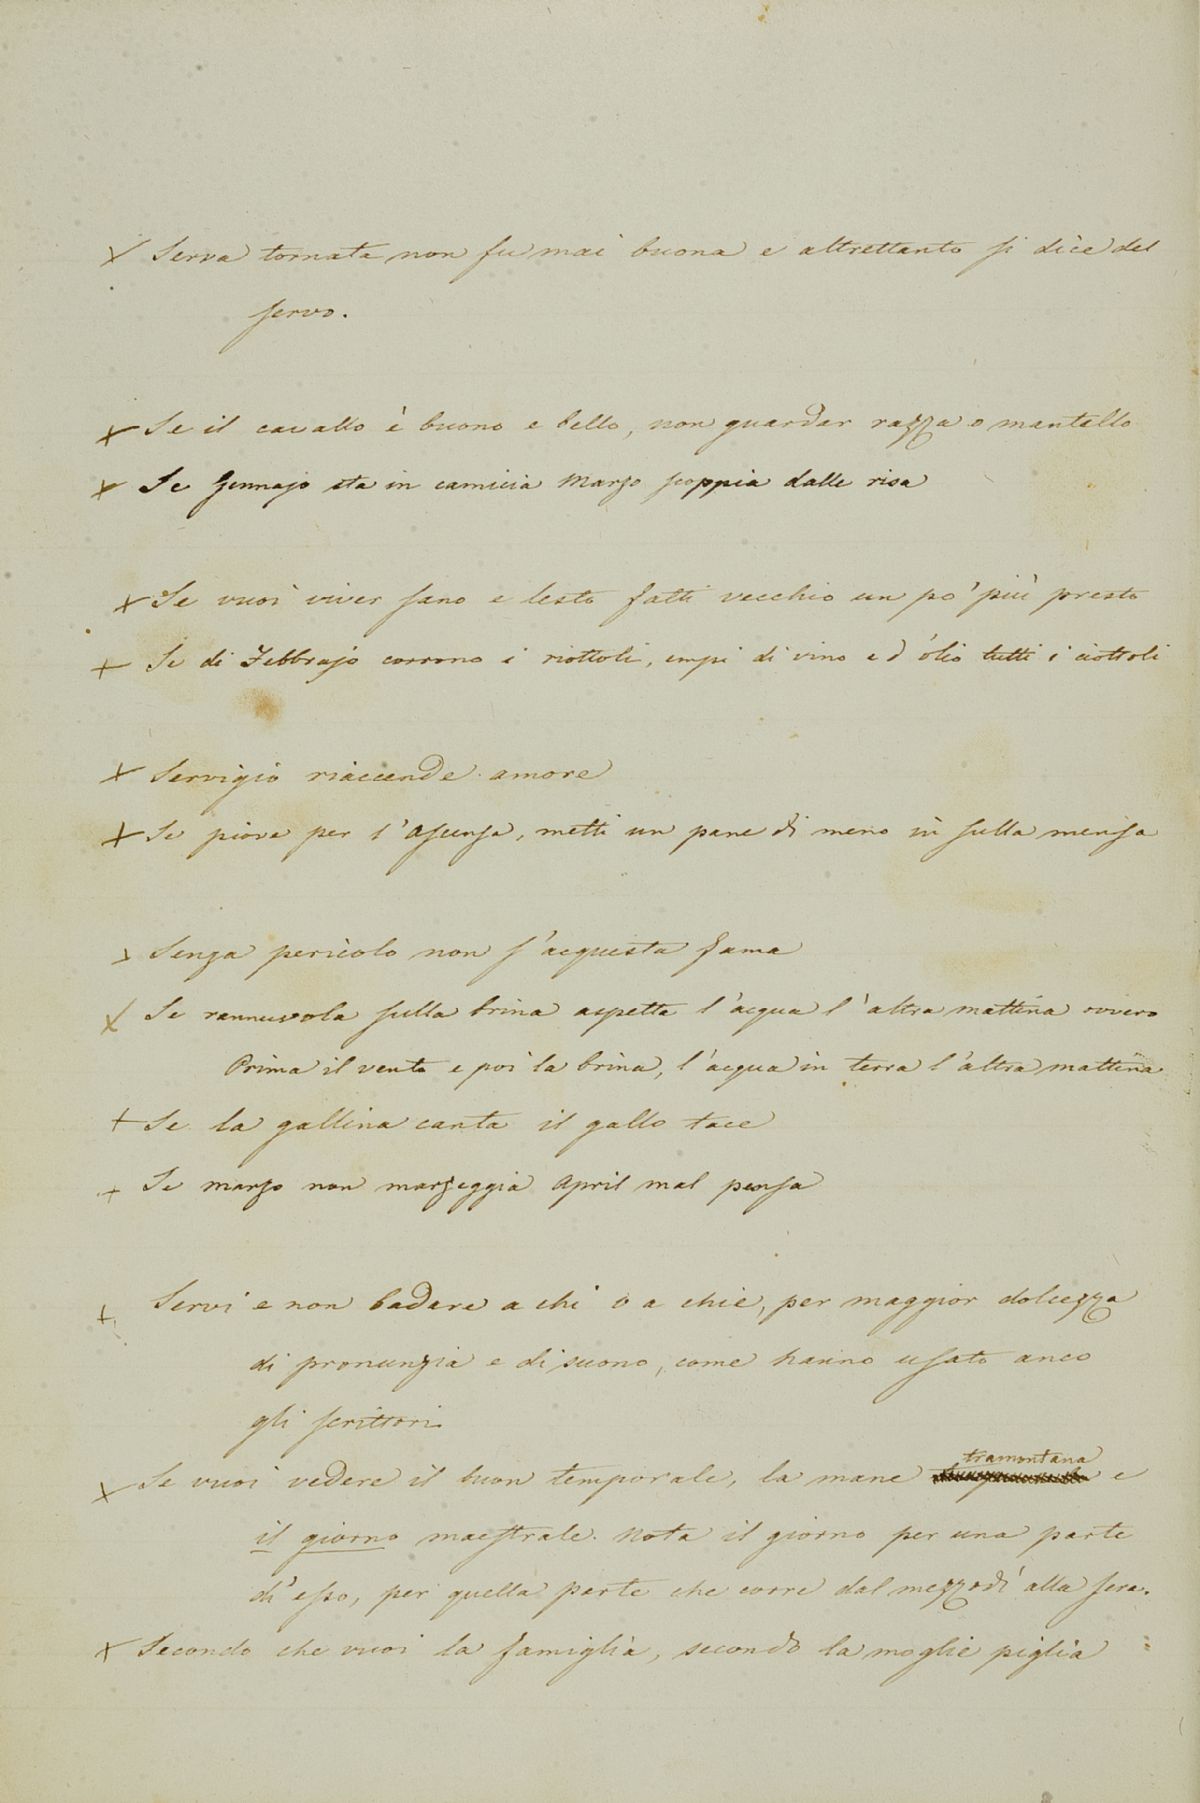 Serva tornata non fu mai buona e altrettanto si dice del
servo.
Se il cavallo è buono e bello, non guardar razza o mantello
Se Gennajo sta in camicia Marzo scoppia dalle risa
Se vuoi viver sano e lesto fatti vecchio un po' più presto
Se di Febbrajo corrono i riottoli, empi di vino e d'olio tutti i ciottoli
Servigio riaccende amore
Se piove per l'Ascensa, metti un pane di meno in sulla mensa
Senza pericolo non s'acquista fama
Se rannuvola sulla brina aspetta l'acqua l'altra mattina ovvero
Prima il vento e poi la brina, l'acqua in terra l'altra mattina
Se la gallina canta il gallo tace
Se marzo non marzeggia April mal pensa
Servi e non badare a chi o a chie, per maggior dolcezza
di pronunzia e di suono, come hanno usato anco
gli scrittori
Se vuoi vedere il buon temporale, la mane tramontana e
il giorno maestrale. Nota il giorno per una parte
d'esso, per quella parte che corre dal mezzodì alla sera.
Secondo che vuoi la famiglia, secondo la moglie piglia